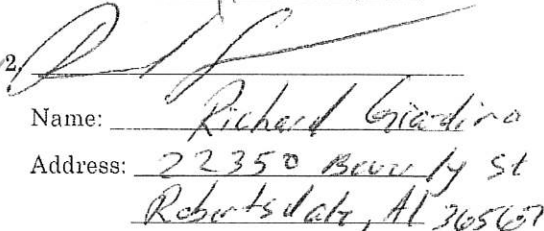 2.
Name: Richard Giardina
Address: 22350 Beverly St
Robertsdale, Al 36567